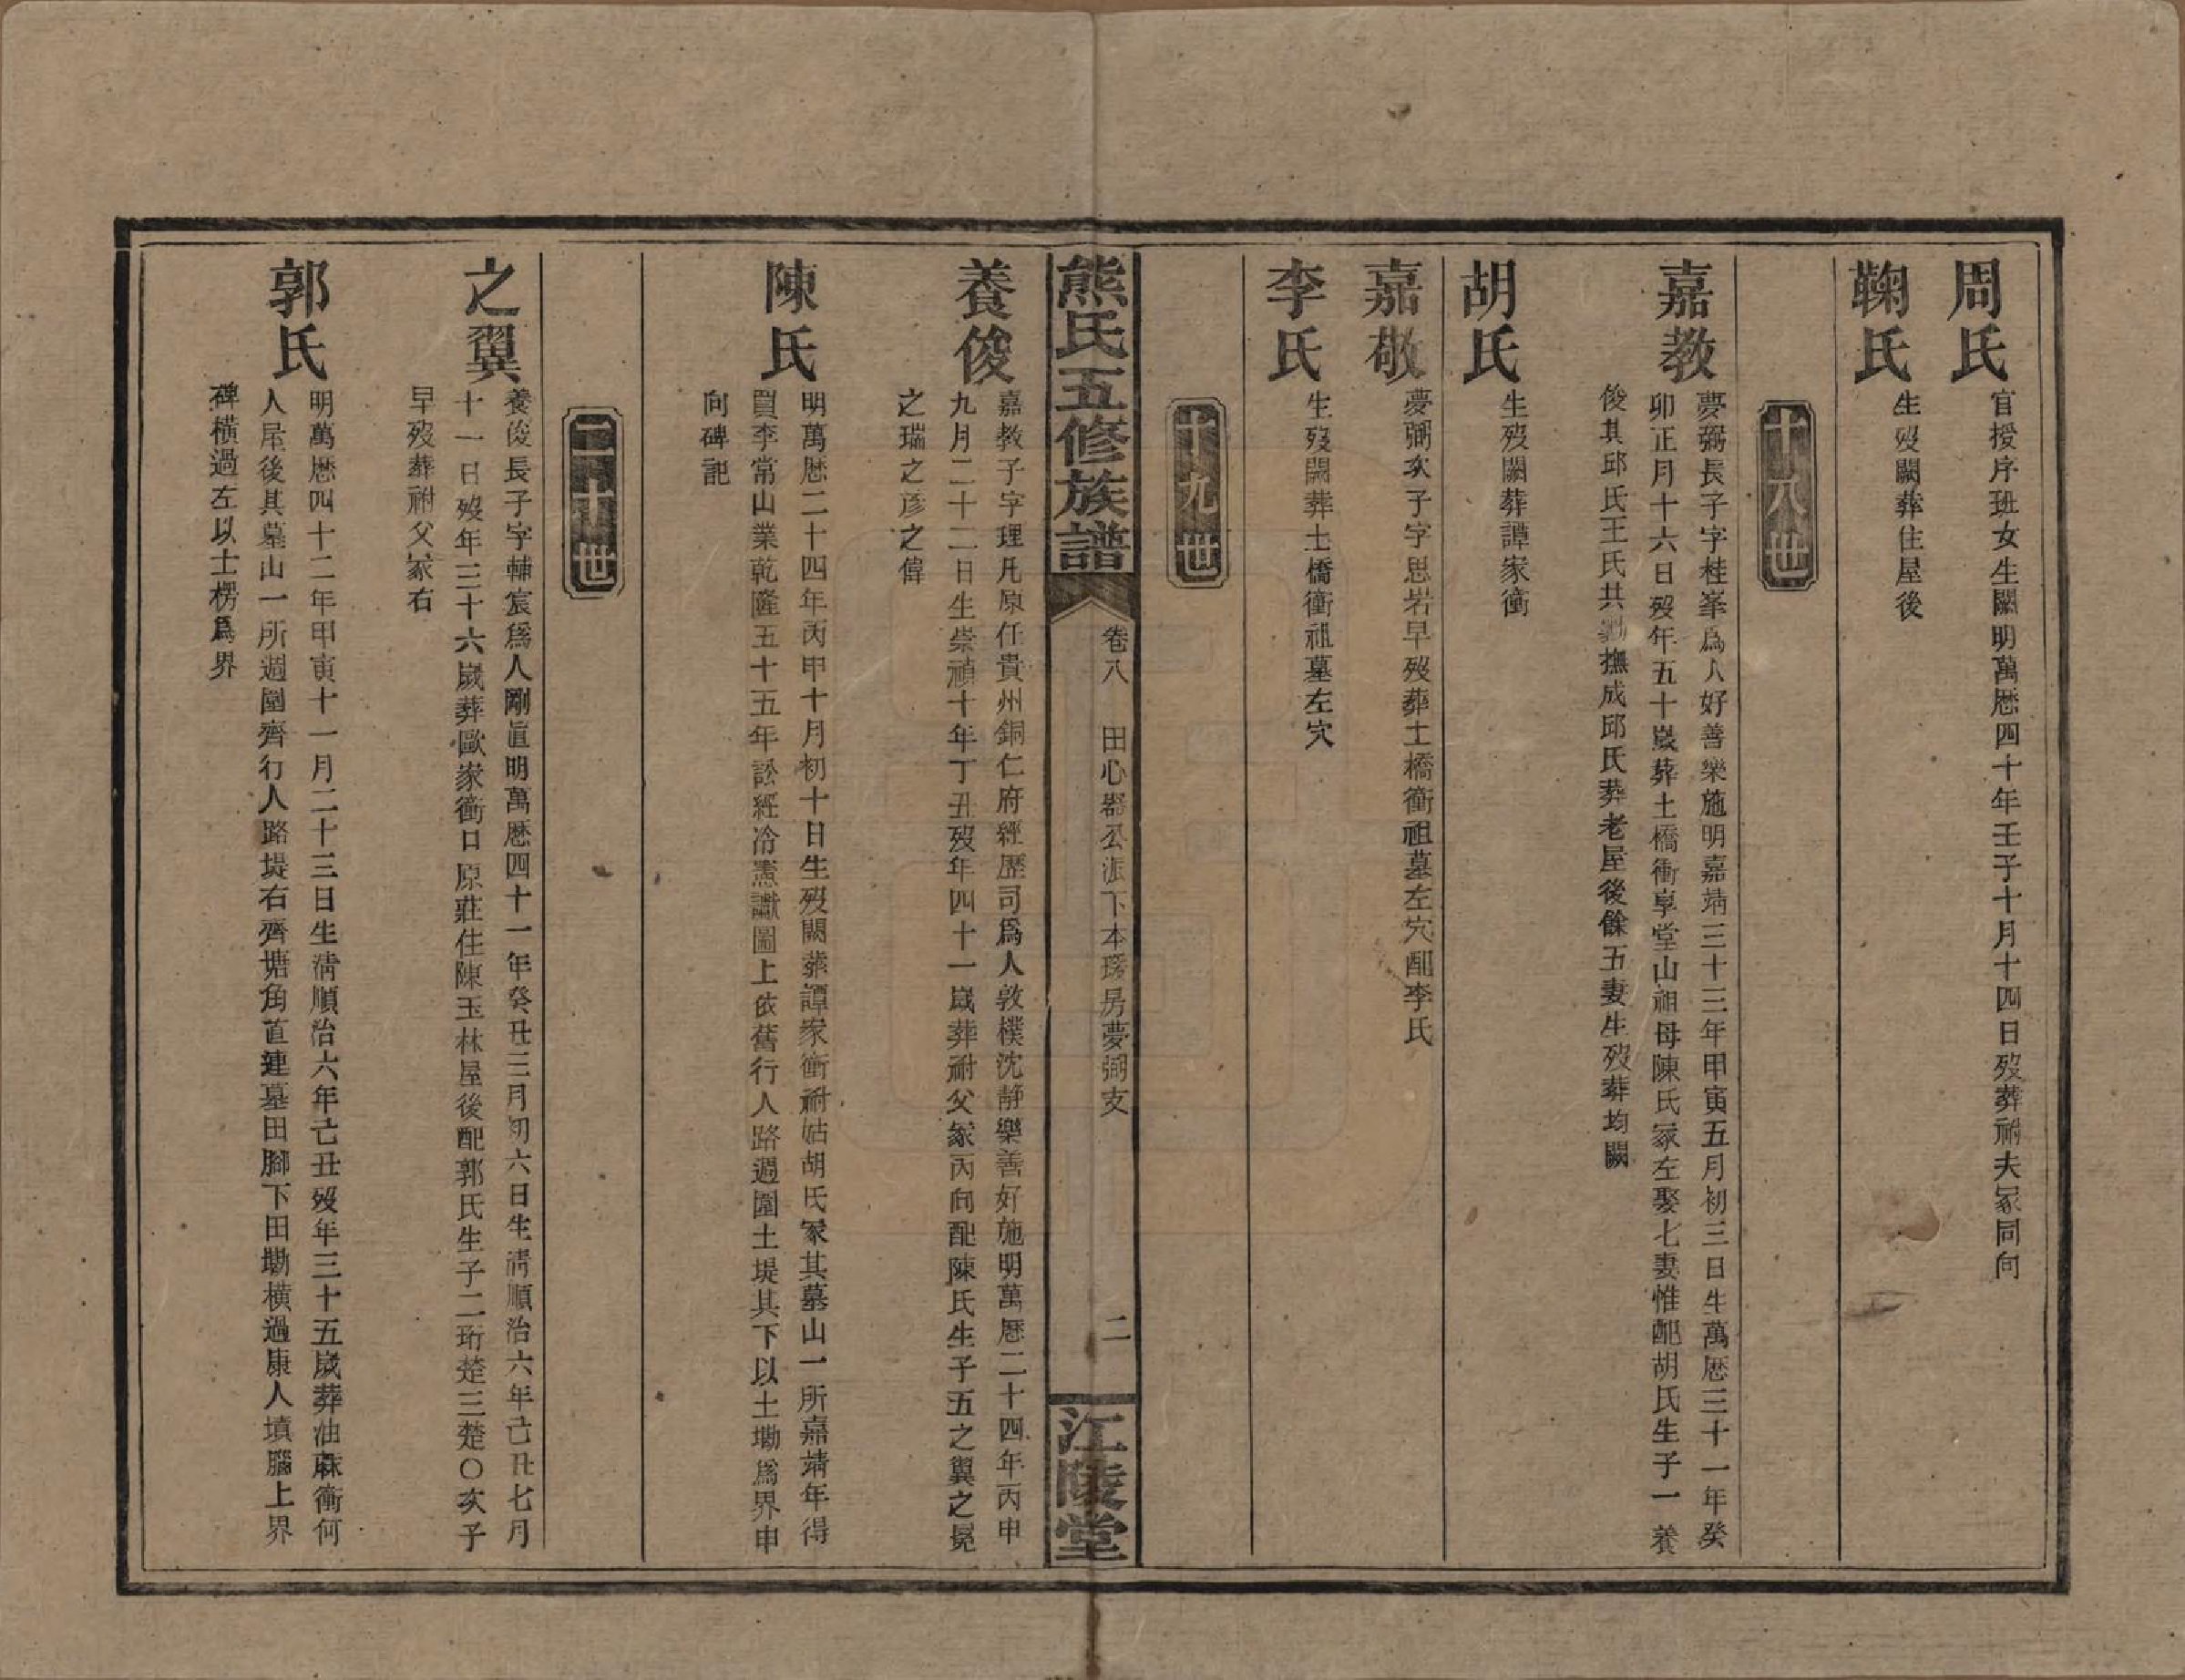 周氏
官授序班女生闕明萬厯四十年壬子十月十四日歿葬祔夫冢同向
鞠氏
生歿闕葬住屋後
十八世
嘉教
夢弼長子字桂峯爲人好善樂施明嘉靖三十三年甲寅五月初三日生萬厯三十一年癸
卯正月十六日歿年五十嵗葬土橋衝享堂山祖母陳氏冢左娶七妻惟配胡氏生子一養
俊其邱氏王氏共勷撫成邱氏葬老屋後餘五妻生歿葬均闕
胡氏
生歿闕葬譚家衝
嘉敬
夢弼次子字思岩早歿葬土橋衝祖墓左穴配李氏
李氏
生歿闕葬土橋衝祖墓左穴
十九世
熊氏五修族譜
卷八 田心器公派下本琇房夢弼支
二
江陵堂
養俊
嘉教子字理凡原任貴州銅仁府經歷司爲人敦樸沈靜樂善好施明萬厯二十四年丙申
九月二十二日生崇禎十年丁丑歿年四十一嵗葬祔父冢丙向配陳氏生子五之翼之冕
之瑞之彥之偉
陳氏
明萬厯二十四年丙申十月初十日生歿闕葬譚家衝祔姑胡氏冢其墓山一所嘉靖年得
買李常山業乾隆五十五年訟經冷憲讞圖上依舊行人路週圍土堤其下以土塝爲界申
向碑記
二十世
之翼
養俊長子字輔宸爲人剛直明萬厯四十一年癸丑三月初六日生淸順治六年己丑七月
十一日歿年三十六嵗葬歐家衝口原莊住陳玉林屋後配郭氏生子二珩楚三楚〇次子
早歿葬祔父冢右
郭氏
明萬厯四十二年甲寅十一月二十三日生淸順治六年己丑歿年三十五嵗葬油蔴衝何
人屋後其墓山一所週圍齊行人路堤右齊塘角直連墓田腳下田塝橫過康人墳腦上界
碑橫過左以土楞爲界